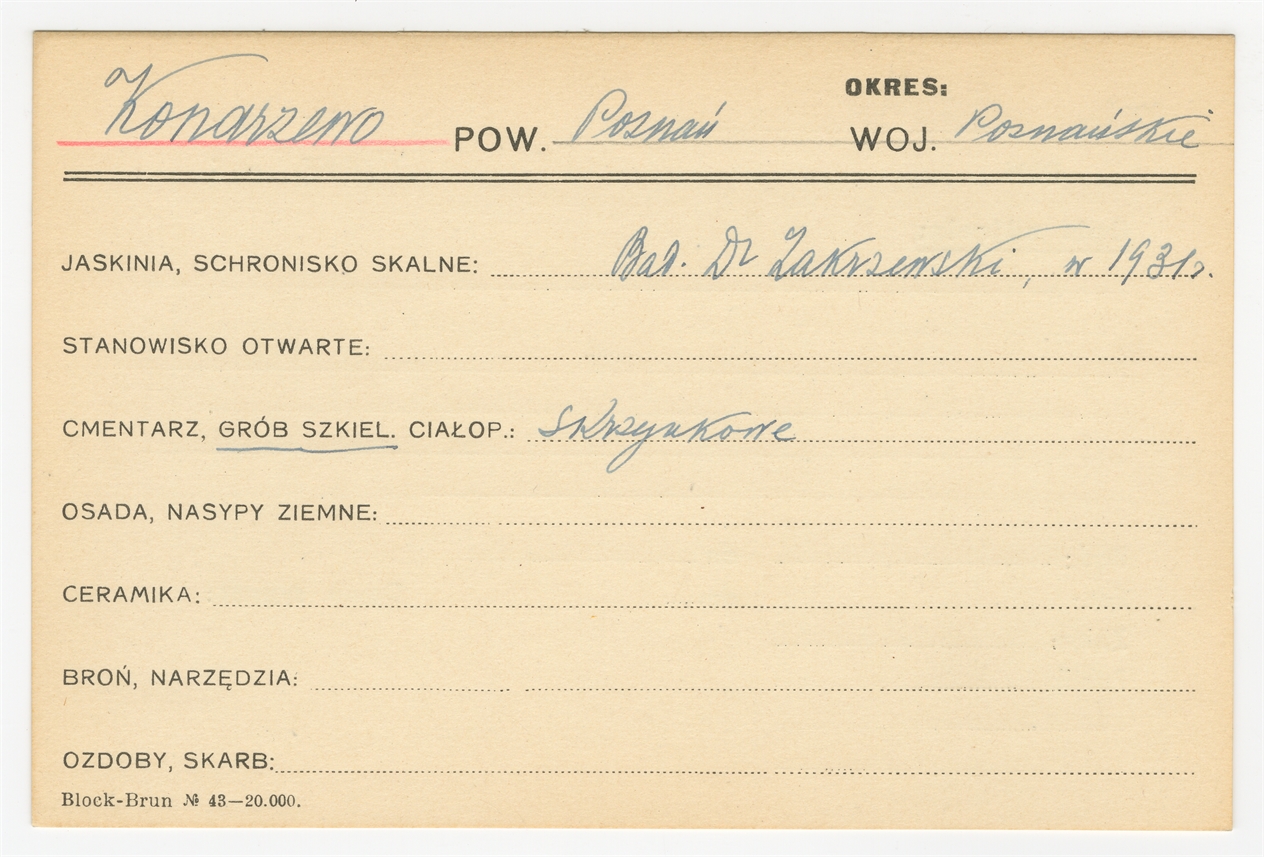 OKRES:
Konarzewo POW. Poznań WOJ. Poznańskie
JASKINIA, SCHRONISKO SKALNE: Bad. Dr Zakrzewski, w 1931r.
STANOWISKO OTWARTE:
CMENTARZ, GRÓB SZKIEL. CIAŁOP.: Skrzynkowe
OSADA, NASYPY ZIEMNE:
CERAMIKA:
BROŃ, NARZĘDZIA:
OZDOBY, SKARB:
Block-Brun № 43—20.000.